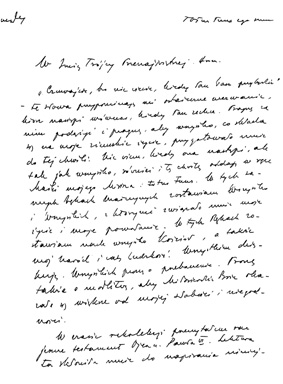 Totus Tuus ego sum
W Imię Trójcy Przenajświętszej. Amen.
„Czuwajcie, bo nie wiecie, kiedy Pan Wasz przybędzie"
– te słowa przypominają mi ostateczne wezwanie,
które nastąpi wówczas, kiedy Pan zechce. Pragnę za
nim podążyć i pragnę, aby wszystko, co składa
się na moje ziemskie życie, przygotowało mnie
do tej chwili. Nie wiem, kiedy ona nastąpi, ale
tak jak wszystko, również i tę chwilę oddaję w ręce
Matki mojego Mistrza: totus Tuus. W tych sa-
mych Rękach Macierzyńskich zostawiam wszystko
i wszystkich, z którymi związało mnie moje
życie i moje powołanie. W tych Rękach zo-
stawiam nade wszystko Kościół, a także
mój Naród i całą ludzkość. Wszystkim dzię-
kuję. Wszystkich proszę o przebaczenie. Proszę
także o modlitwę, aby Miłosierdzie Boże oka-
zało się większe od mojej słabości i niegod-
ności.
W czasie rekolekcji przeczytałem raz
jeszcze testament Ojca św. Pawła VI. Lektura
ta skłoniła mnie do napisania niniej-